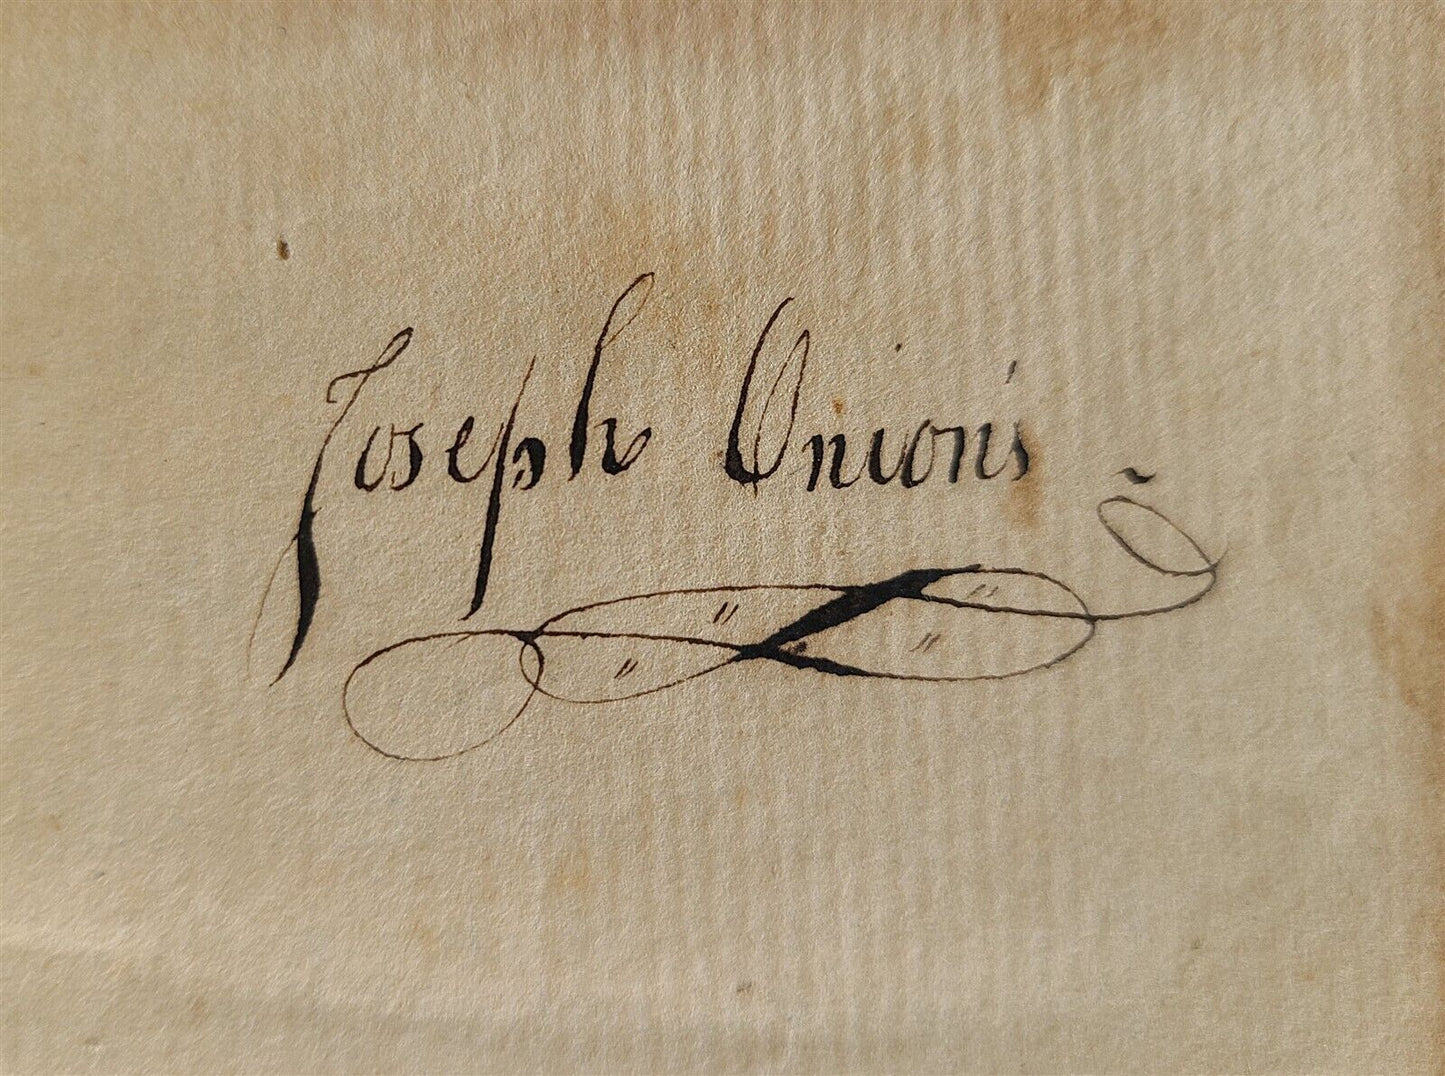 Joseph Onion's